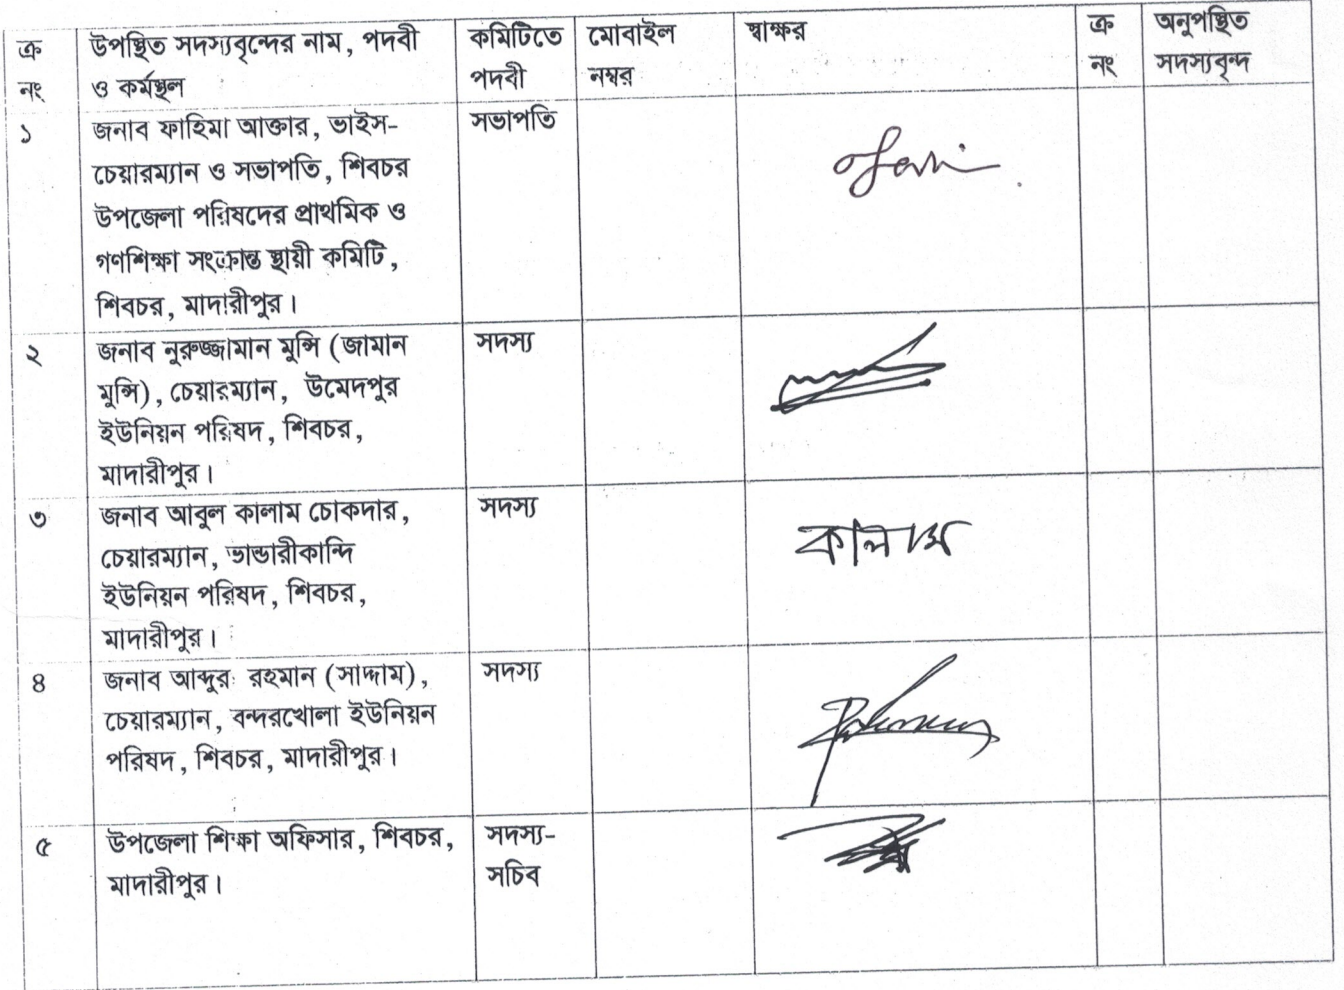 ক্র নং
উপস্থিত সদস্যবৃন্দের নাম, পদবী
ও কর্মস্থল
কমিটিতে
পদবী
মোবাইল
নম্বর
স্বাক্ষর
ক্র
নং
অনুপস্থিত
সদস্যবৃন্দ
১
জনাব ফাহিমা আক্তার, ভাইস-
চেয়ারম্যান ও সভাপতি, শিবচর
উপজেলা পরিষদের প্রাথমিক ও
গণশিক্ষা সংক্রান্ত স্থায়ী কমিটি,
শিবচর, মাদারীপুর।
সভাপতি
২
জনাব নুরুজ্জামান মুন্সি (জামান
মুন্সি), চেয়ারম্যান, উমেদপুর
ইউনিয়ন পরিষদ, শিবচর,
মাদারীপুর।
সদস্য
৩
জনাব আবুল কালাম চোকদার,
চেয়ারম্যান, ভান্ডারীকান্দি
ইউনিয়ন পরিষদ, শিবচর,
মাদারীপুর।
সদস্য
কালাম
৪
জনাব আব্দুর রহমান (সাদ্দাম),
চেয়ারম্যান, বন্দরখোলা ইউনিয়ন
পরিষদ, শিবচর, মাদারীপুর।
সদস্য
৫
উপজেলা শিক্ষা অফিসার, শিবচর,
মাদারীপুর।
সদস্য-
সচিব